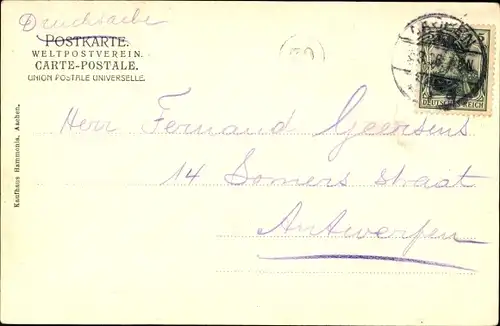 Drucksache
POSTKARTE.
WELTPOSTVEREIN.
CARTE-POSTALE.
UNION POSTALE UNIVERSELLE.
AACHEN
DEUTSCHES REICH
Herr Fernand Geersens
14 Somers straat
Antwerpen
Kaufhaus Hammonia, Aachen.